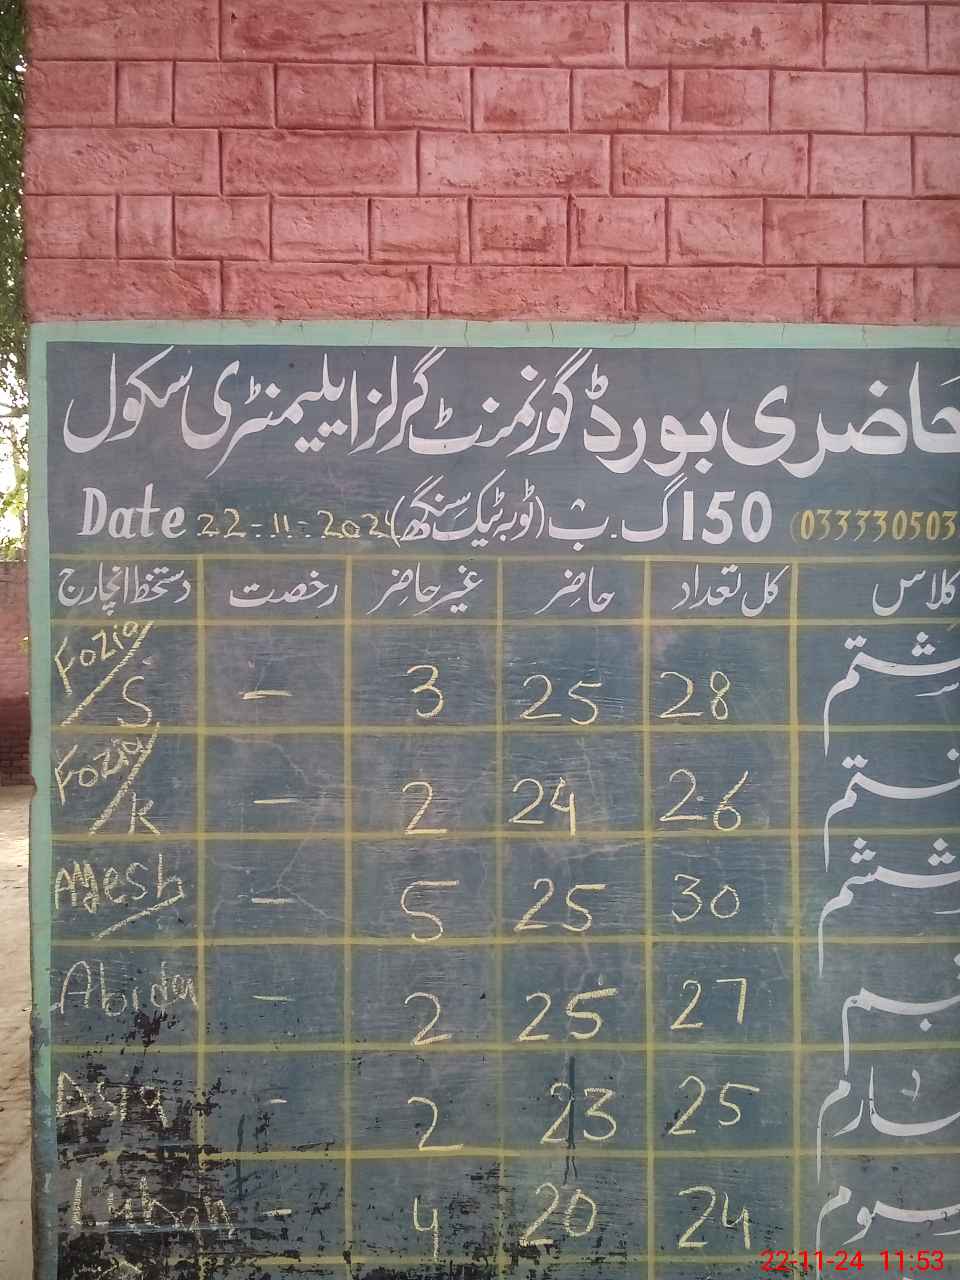 حاضری بورڈ گورنمنٹ گرلز ایلیمنٹری سکول
033330503 150 گ.ب (ٹوبہ ٹیک سنگھ) Date 22-11-2024
کلاس کل تعداد حاضر غیر حاضر رخصت دستخط انچارج
ہشتم 28 25 3 - Fozia/S
ہفتم 26 24 2 - Fozia/K
ششم 30 25 5 - Ayesh
پنجم 27 25 2 - Abida
چہارم 25 23 2 - Asia
سوم 24 20 4 - Luban
22-11-24 11:53